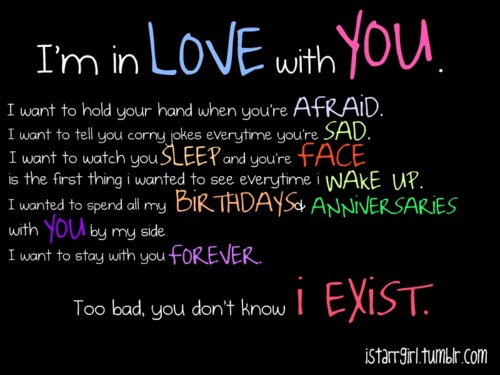 I'm in LOVE with YOU.
I want to hold your hand when you're AFRAiD.
I want to tell you corny jokes everytime you're SAD.
I want to watch you SLEEP and you're FACE
is the first thing i wanted to see everytime i WAKE UP.
I wanted to spend all my BiRTHDAYS& ANNiVERSARiES
with YOU by my side.
I want to stay with you FOREVER.
Too bad, you don't know i EXiST.
istarrgirl.tumblr.com